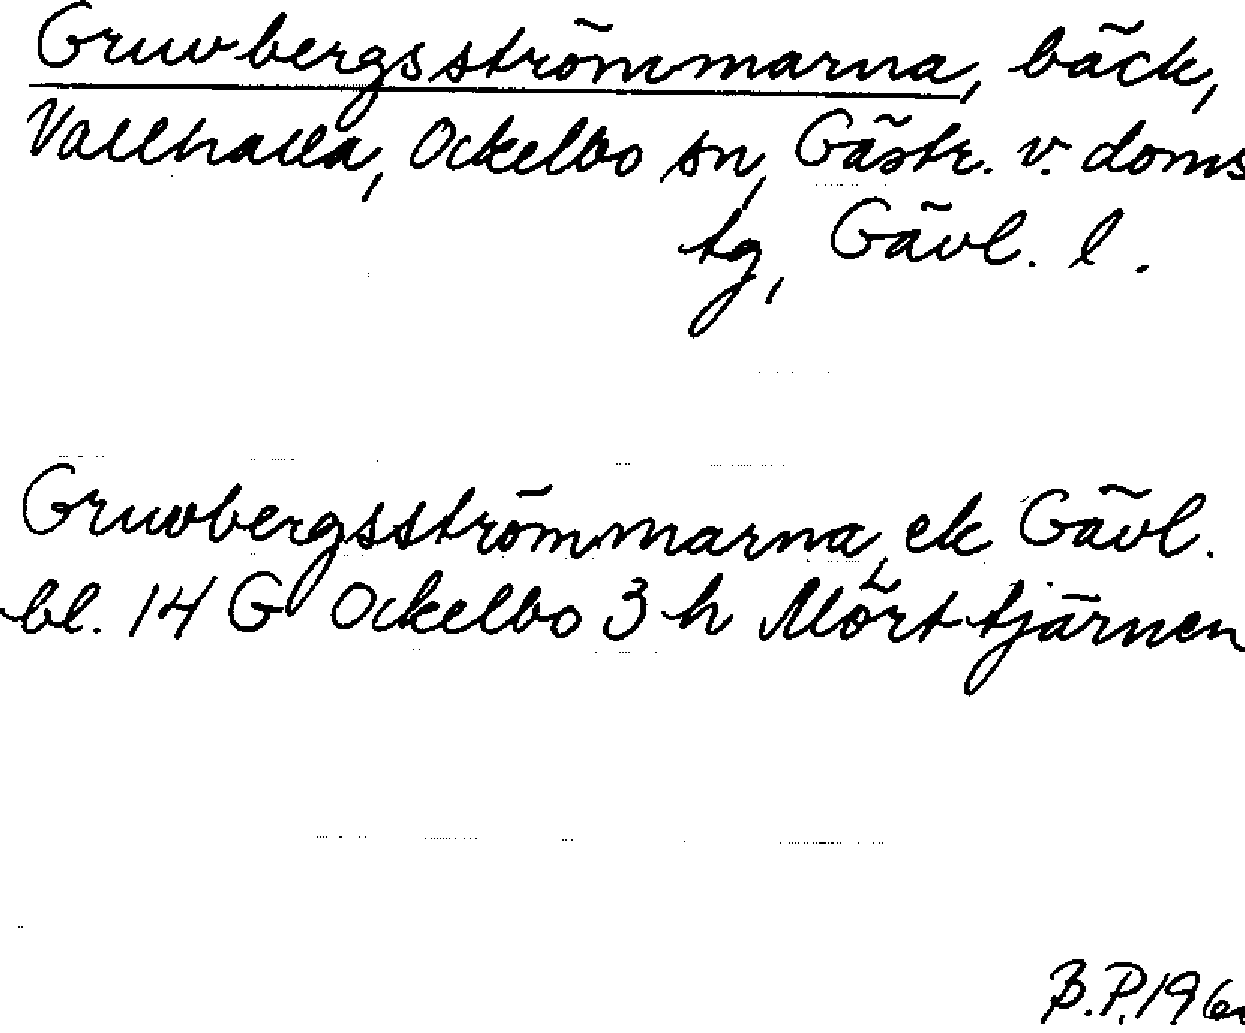 Gruvbergsströmmarna, bäck,
Vallhalla, Ockelbo sn, Gästr. v. doms
tg, Gävl. l.
Gruvbergsströmmarna, ek Gävl.
bl. 14 G Ockelbo 3 h Mörttjärnen
B.P.